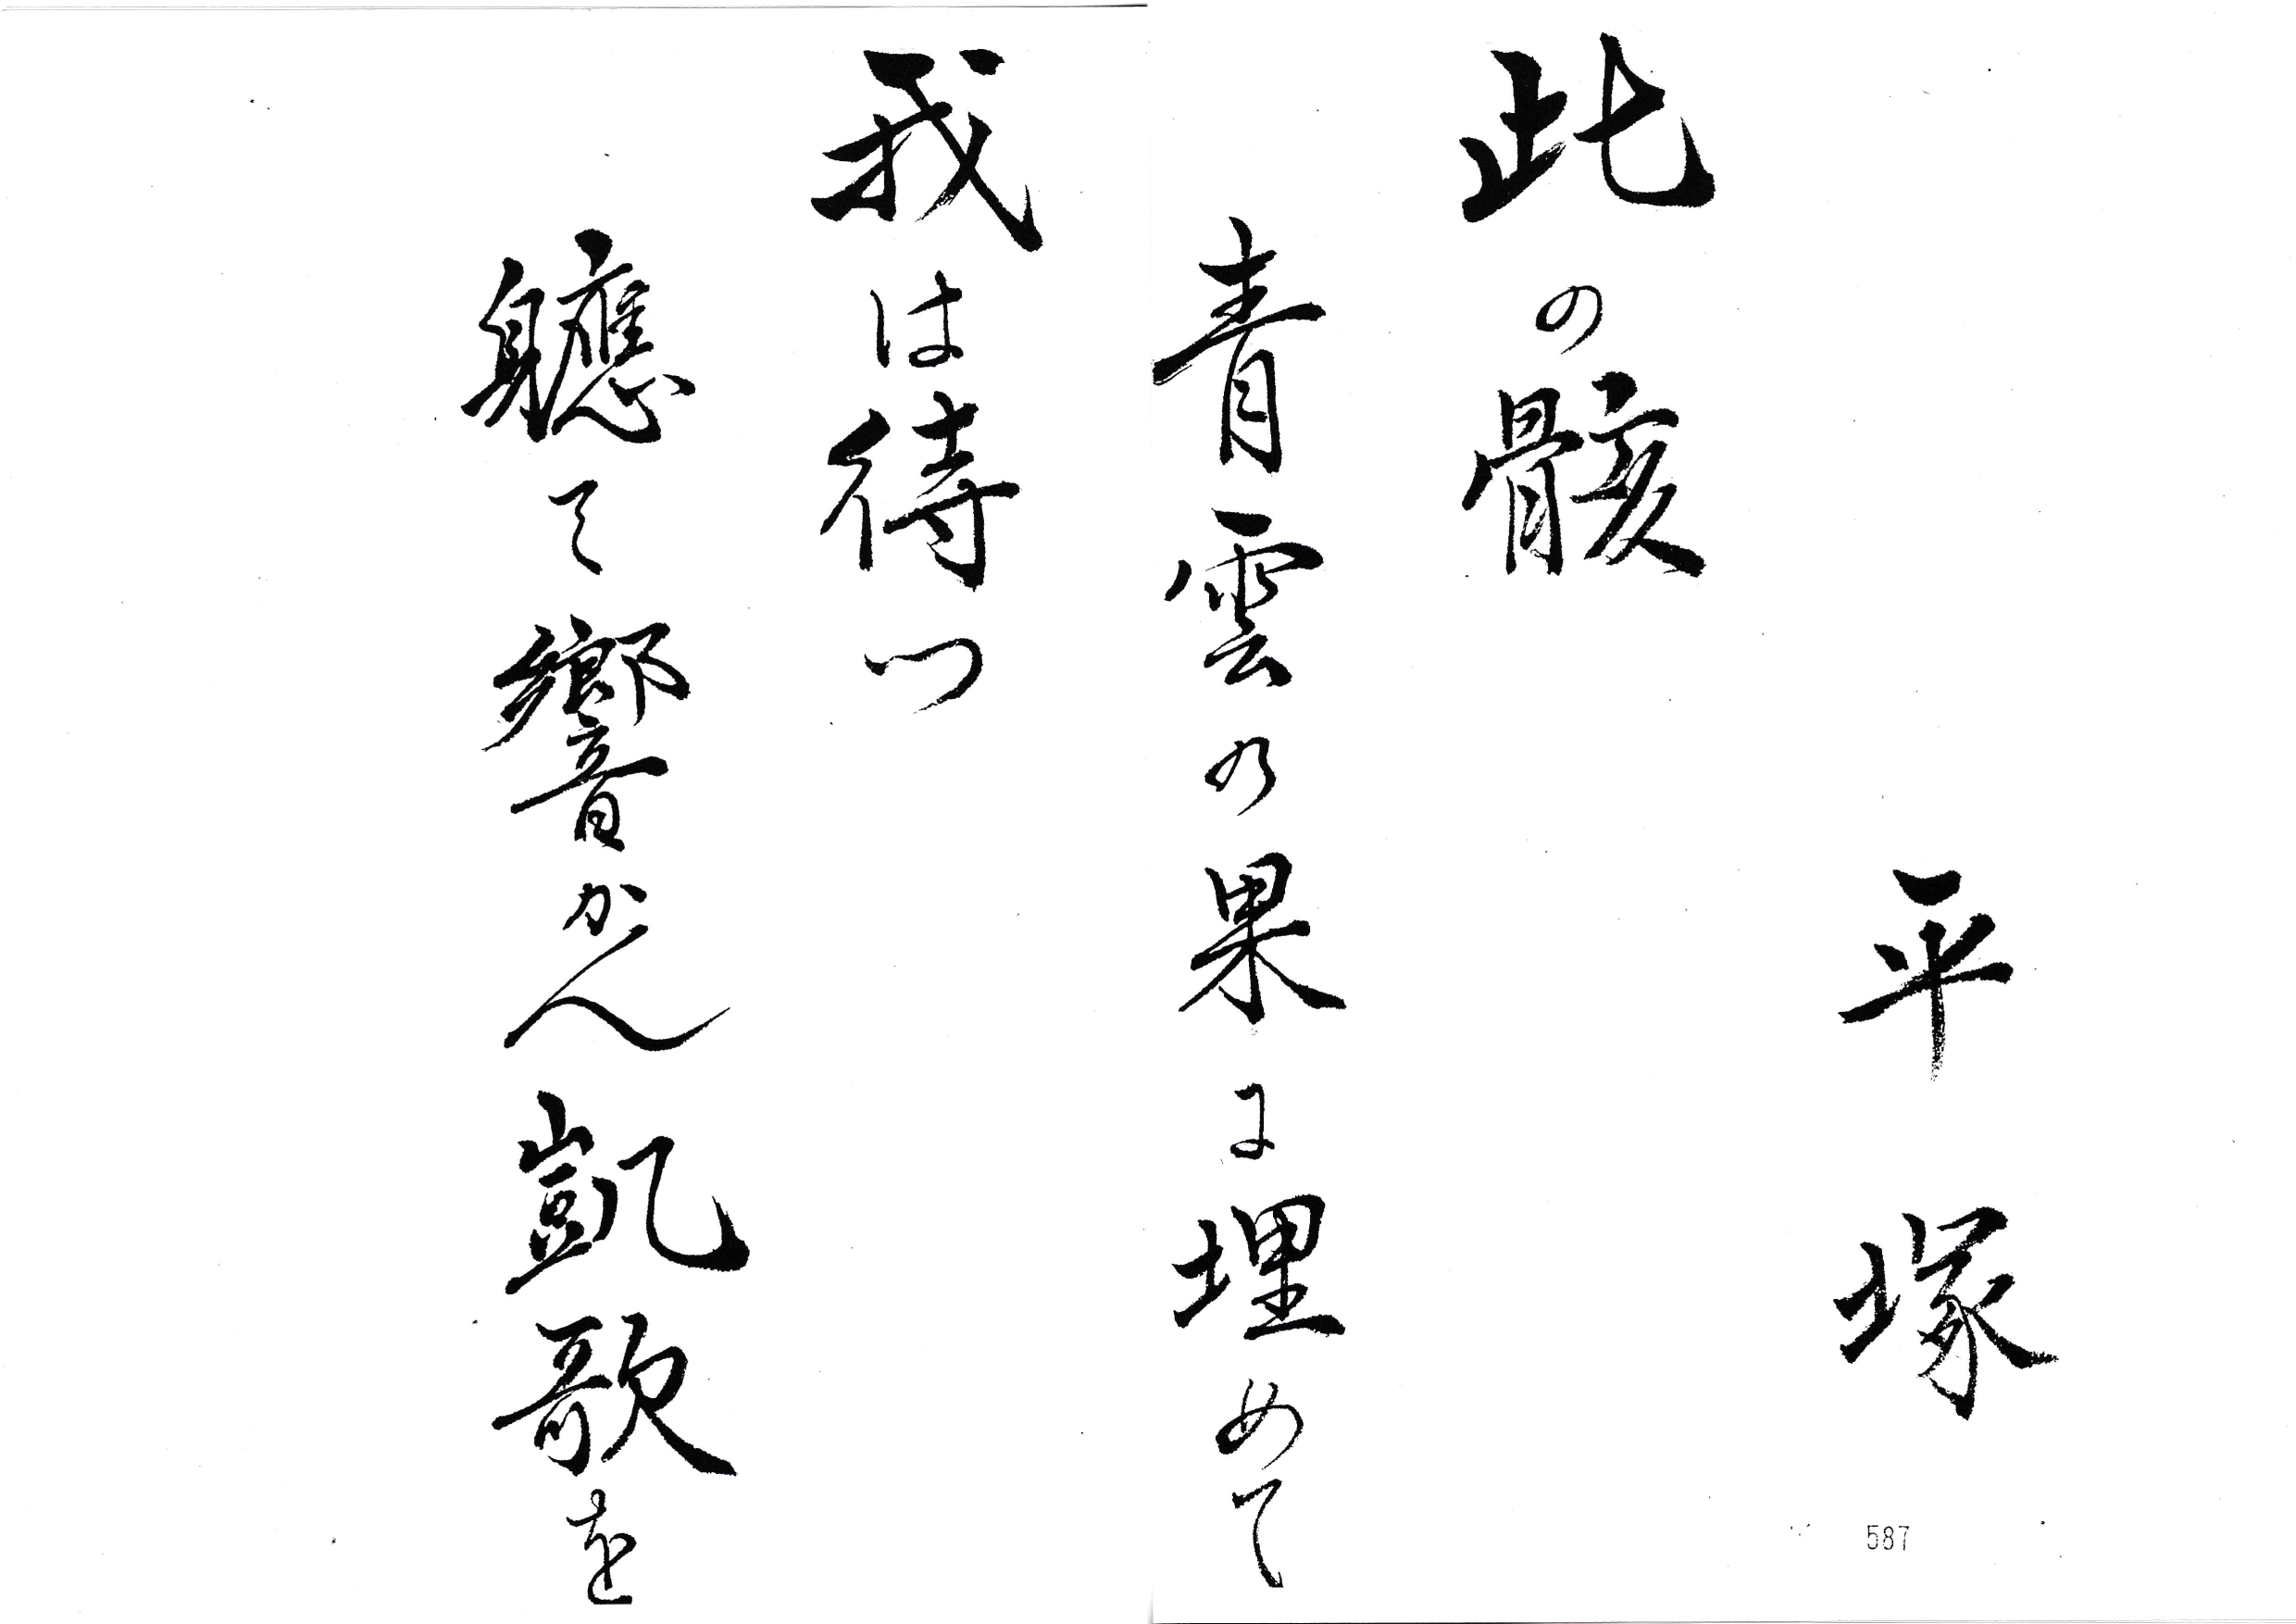 平塚
此の骸
青雲の果に埋めて
我は待つ
軈て響かん凱歌を
587